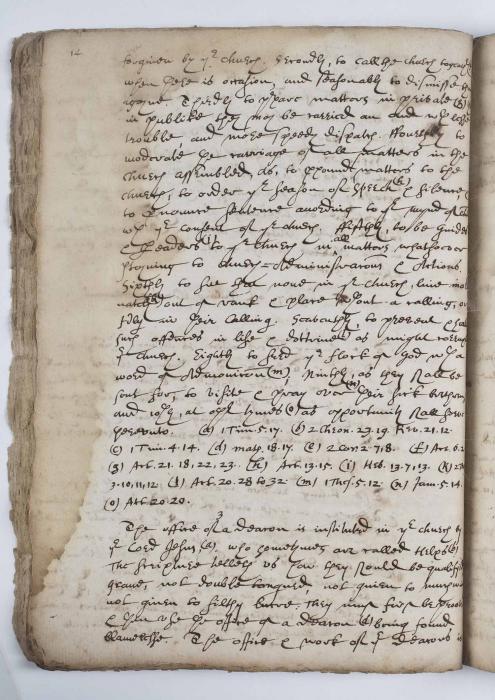 14
forgiven by yᵉ church. Secondly, to call the church togeather
when there is occasion, and seasonably to dismisse them
againe. Thirdly to prepare matters in private (g)
in publike they may be carried an end wᵗʰ lesse
trouble and more speedy dispatch. Fourthly to
moderate the carriage of all matters in the
church assembled, as, to propound matters to the
church, to order yᵉ season of speech (h) & silence,
to pronounce sentence according to yᵉ mynd of
wᵗʰ yᵉ consent of yᵉ church. fifthly, to be guides
& leaders (i) to yᵉ church in all matters whatsoever
p̱tayning to church-Administracons & Actions.
Sixthly to see that none in yᵉ church live in
out of ranke & place wᵗʰout a calling, or
Idly in their Calling. Seaventhly to prevent &
such offences in life & doctrine (l) as might corrupt
yᵉ church. Eighth to feed yᵉ flock of God wᵗʰ a
word of Admonition (m), Ninthly, as they shall be
sent for, to visite & pray over (n) their sick brethren,
and at othʳ times (o) as opportunity shall serve
thereunto. (a) 1 Tim. 5. 17. (b) 2 Chron. 23. 19. Rev. 21. 12.
(c) 1 Tim. 4. 14. (d) math. 18. 17. (e) 2 Cor. 2. 7, 8. (f) Act. 6. 2
(g) Act. 21. 18, 22, 23. (h) Act. 13. 15. (i) Heb. 13. 7, 17. (k) 2 Th
3. 10, 11, 12. (l) Act. 20. 28 to 32. (m) 1 Thes. 5. 12. (n) Jam. 5. 14.
(o) Act. 20. 20.
3
The office of a deacon is instituted in yᵉ church by
yᵉ Lord Jesus (a), who sometimes are called Helps (b)
The Scripture telleth us how they should be qualified
grave, not double tongued not given to much wine
not given to filthy lucre. They must first be proved
& then use the office of a deacon (c) being found
blamelesse. The office & work of yᵉ Deacons is